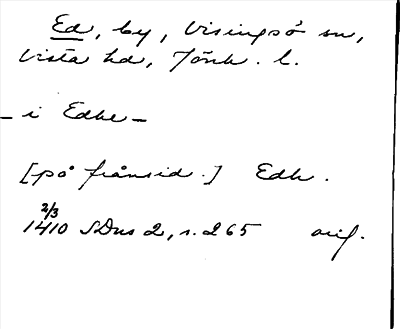 Ed, by, Visingsö sn,
Vista hd, Jönk. l.
– i Edhe –
[på frånsid.] Edh.
2/3
1410 SDns 2, s. 265 orig.